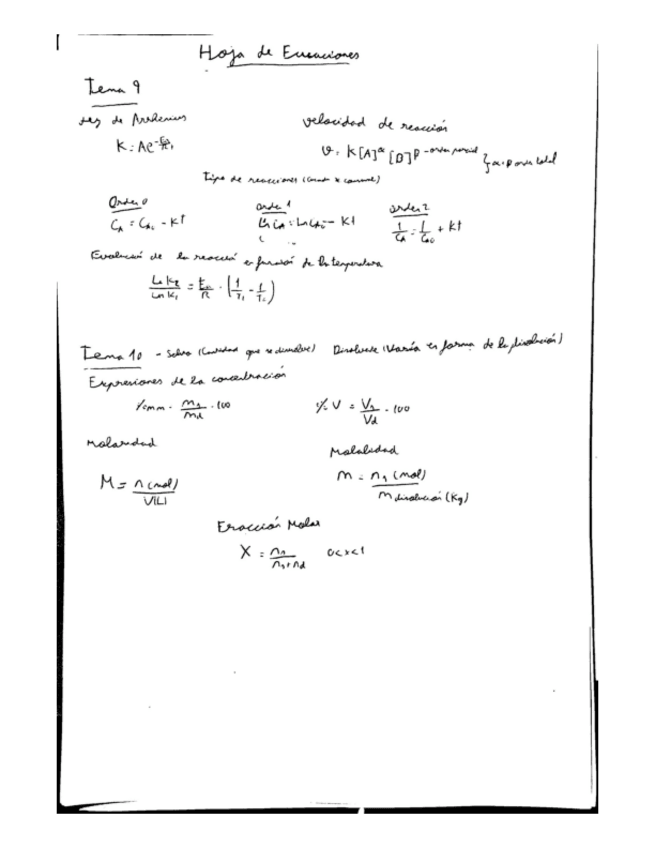 Hoja de Ecuaciones
Tema 9
Ley de Arrhenius
Velocidad de reacción
K = Ae^-Ea/RT
v = K[A]^α [B]^β - orden parcial } α+β orden total
Tipo de reacciones (
Orden 0
Orden 1
Orden 2
C_A = C_A0 - Kt
Ln C_A = Ln C_A0 - Kt
1/C_A = 1/C_A0 + Kt
Evolución de la reacción en función de la temperatura
Ln K2 / Ln K1 = Ea/R · (1/T1 - 1/T2)
Tema 10 - Soluto (Cantidad que se disuelve) Disolvente (Varía en forma de la disolución)
Expresiones de la concentración
% m.m = ms/md · 100
% V = Vs/Vd · 100
Molaridad
Molalidad
M = n (mol) / V(L)
m = ns (mol) / m disolución (Kg)
Fracción Molar
X = ns / ns + nd 0<x<1